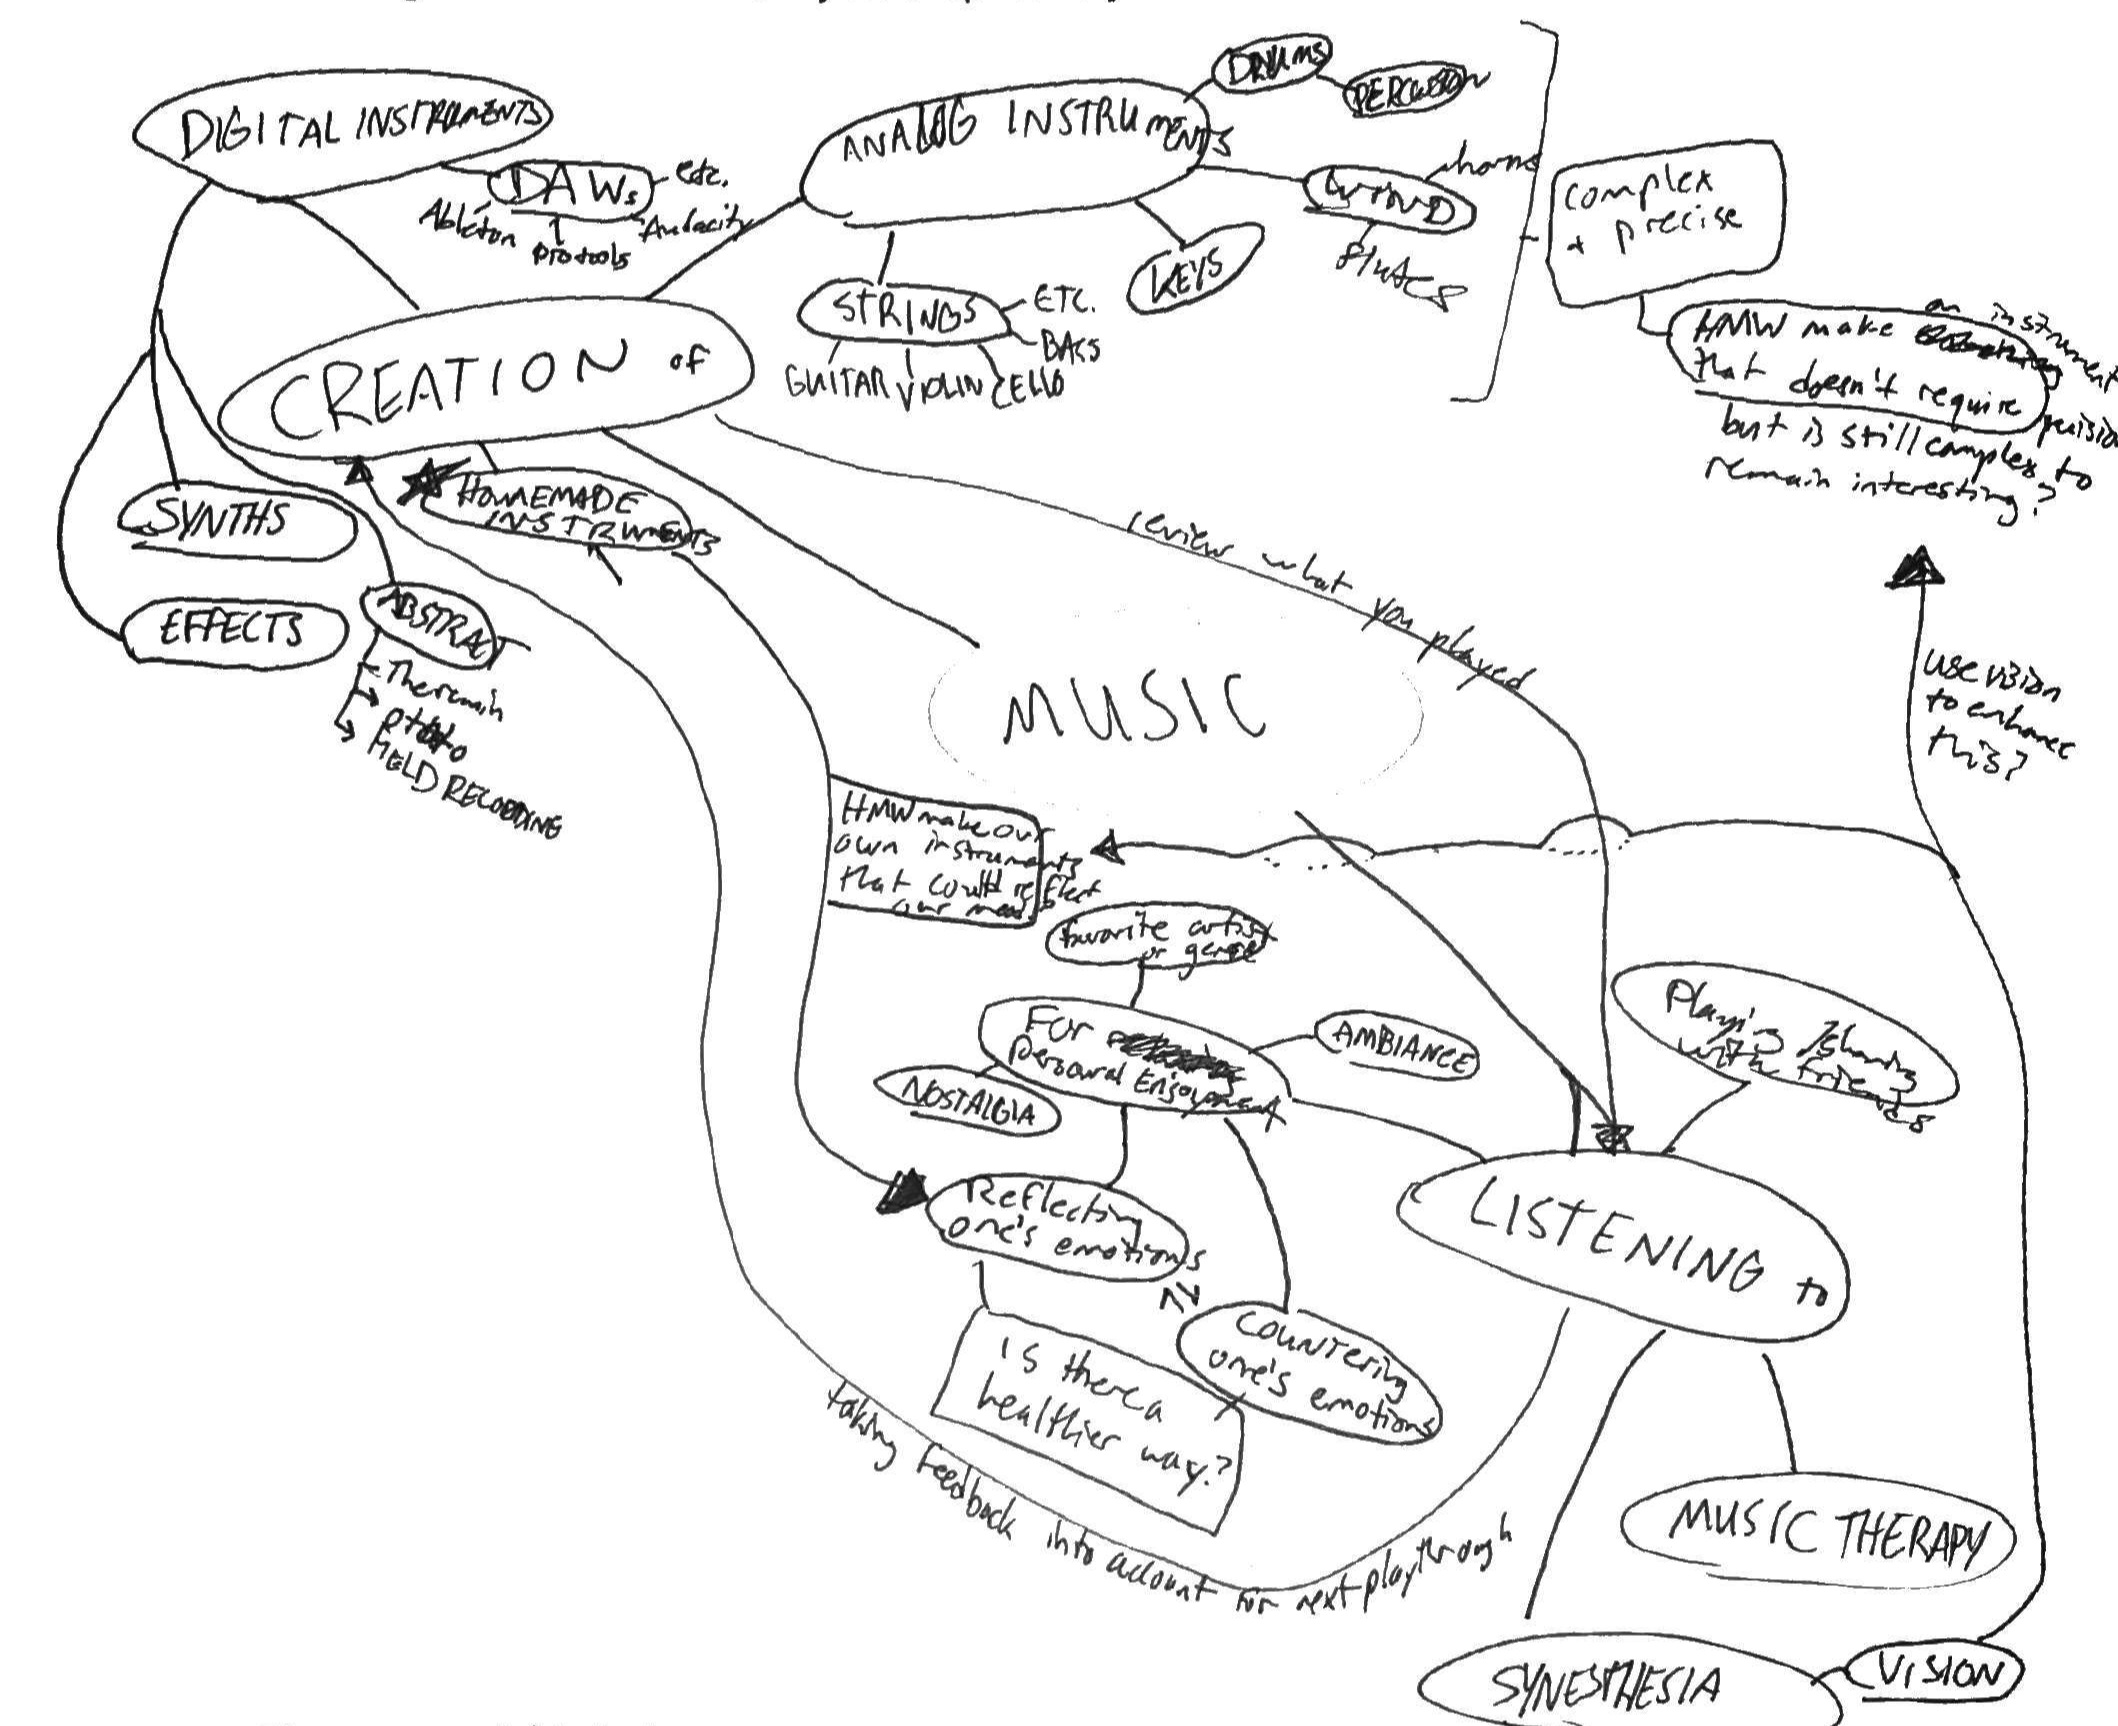 DIGITAL INSTRUMENTS
DAWs
etc.
Ableton
protools
Audacity
ANALOG INSTRUMENTS
DRUMS
PERCUSSION
WIND
horns
flutes
KEYS
STRINGS
ETC.
BASS
GUITAR VIOLIN CELLO
complex
+ precise
HMW make an instrument
that doesn't require precision
but is still complex to
remain interesting?
CREATION of
HOMEMADE
INSTRUMENTS
SYNTHS
EFFECTS
ABSTRACT
Theremin
FIELD RECORDING
review what you played
MUSIC
use vision
to enhance
this?
HMW make our
own instruments
that could reflect
our mood?
favorite artist
or genre
For
Personal Enjoyment
AMBIANCE
NOSTALGIA
Playing/sharing
with friends
Reflecting
one's emotions
LISTENING to
Countering
one's emotions
is there a
healthier way?
taking feedback into account for next playthrough
MUSIC THERAPY
SYNESTHESIA
VISION